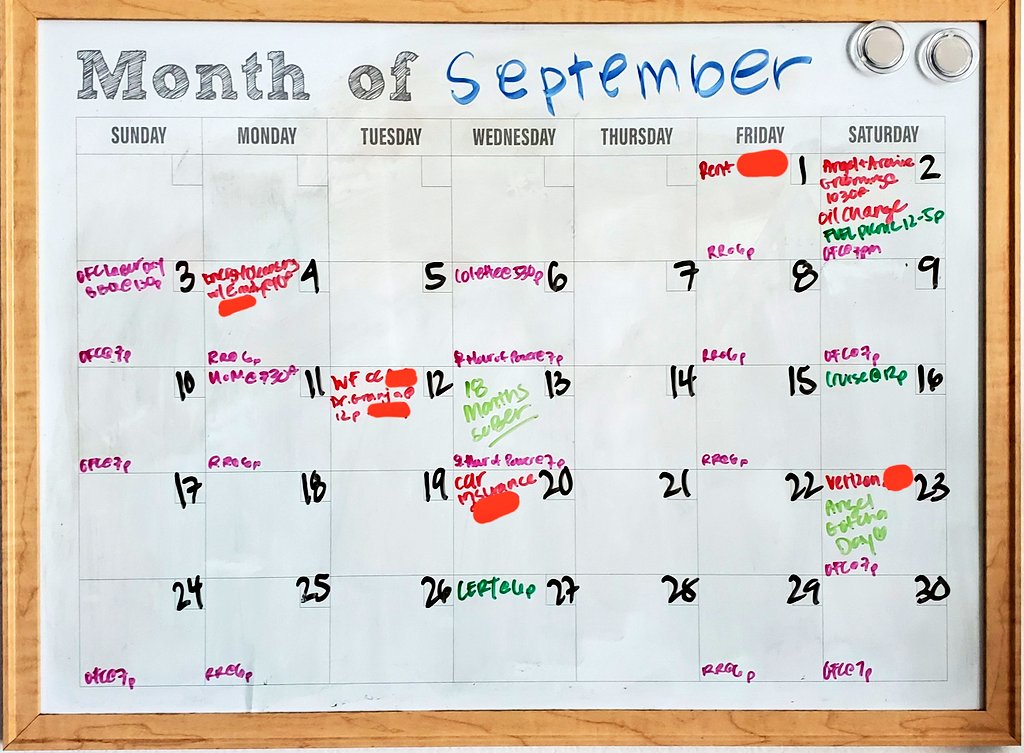 Month of September
SUNDAY MONDAY TUESDAY WEDNESDAY THURSDAY FRIDAY SATURDAY
Rent 1
Angel + Archie 2
1030A
Oil Change
FUEL PICNIC 12-5p
RR@6p
OFC@7pm
OFC Labor Day 3
BBQ@130p
OFC@7p
4
RR@6p
5
Colette@530p 6
Hour of Power@7p
7
8
RR@6p
9
OFC@7p
10
OFC@7p
MoM@730A 11
RR@6p
WF CC 12
12p
18 13
Months
sober
Hour of Power@7p
14
15
RR@6p
Cruise@12p 16
17
18
19
Car 20
Insurance
21
22
Verizon 23
Angel
Gotcha
Day
OFC@7p
24
OFC@7p
25
RR@6p
26
CERT@6p 27
28
29
RR@6p
30
OFC@7p